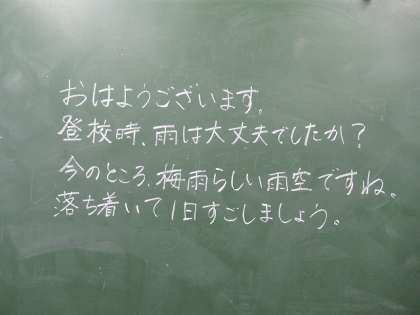 おはようございます。
登校時、雨は大丈夫でしたか?
今のところ、梅雨らしい雨空ですね。
落ち着いて1日すごしましょう。